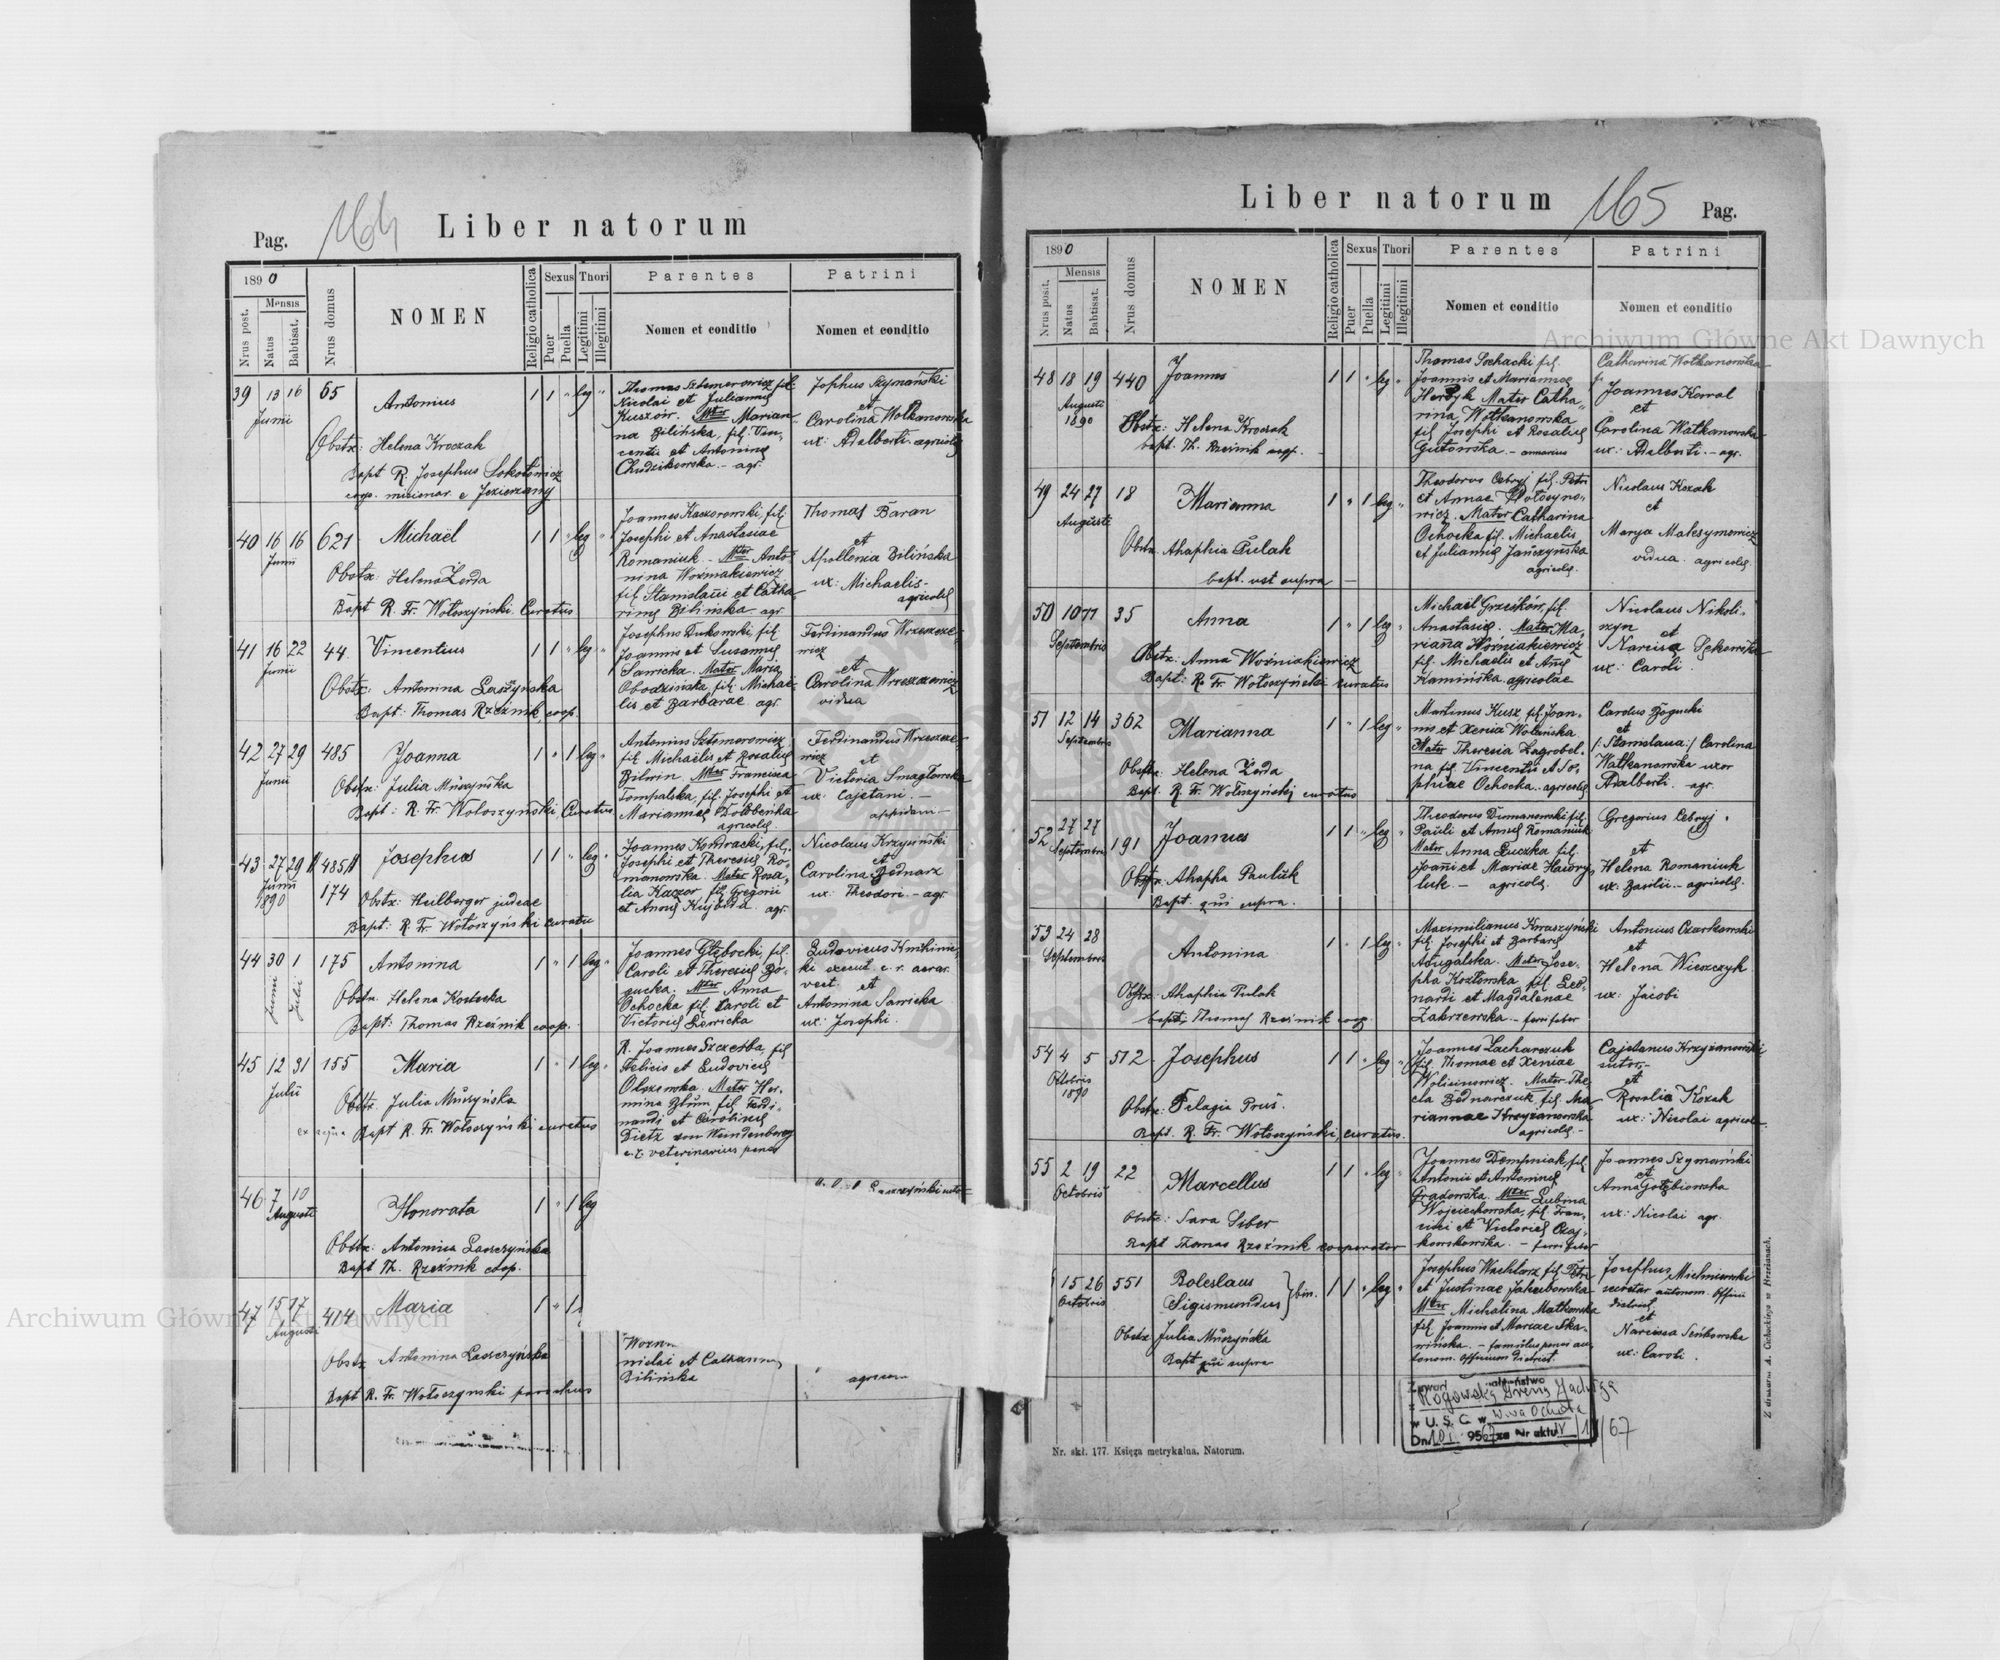 Pag. 164 Liber natorum
1890
Nrus post.
Mensis
Natus
Babtisat.
Nrus domus
NOMEN
Religio catholica
Sexus
Puer
Puella
Thori
Legitimi
Illegitimi
Parentes
Nomen et conditio
Patrini
Nomen et conditio
39 13 16 65 Antonius 1 1 " leg "
Junii
Obstx: Helena Kroczak
Bapt R. Josephus Sokołowicz
misionar e Jezierzany
Thomas Sztemerowicz fil.
Nicolai et Juliannae
Kuszoir. Mater Marian-
na Bilińska, fil. Vin-
centii et Antoninae
Chudzikowska - agr.
Josphus Szymański
et
Carolina Wołkanowska
ux: Adalberti agricolae
40 16 16 621 Michaël 1 1 " leg "
Junii
Obstx: Helena Żerda
Bapt R. Fr. Wołoszyński Curatus
Joannes Kaczorowski, fil.
Josephi et Anastasiae
Romaniuk - Mater Anto-
nina Woźniakiewicz
fil Stanislaii et Catha-
rinae Bilińska agr.
Thomas Baran
et
Apollonia Bilińska
ux: Michaelis -
agricolae
41 16 22 44 Vincentius 1 1 " leg "
Junii
Obstx: Antonina Laszyńska
Bapt: Thomas Rzeźnik, coop.
Josephus Dukowski, fil
Joannis et Susannae
Sawicka. Mater Maria
Obodzińska, fil: Michae-
lis et Barbarae agr.
Ferdinandus Wrzeszcze-
wicz
et
Carolina Wrzeszczewicz
vidua
42 27 29 485 Joanna 1 " 1 leg "
Junii
Obstx: Julia Muszyńska
Bapt: R. Fr. Wołoszyński, Curatus
Antonius Sztemerowicz
fil Michaëlis et Rosaliae
Bilwin. Mater Francisca
Tompalska, fil. Josephi et
Mariannae Dołbeńka
agricolae
Ferdinandus Wrzeszcze-
wicz
et
Victoria Smagłowska
ux: Cajetani. -
43 27 29 485 Josephus 1 1 " leg "
Junii
1890 174
Obstx: Heilberger judeae
Bapt: R. Fr. Wołoszyński curatu
Joannes Kondracki, fil.
Josephi et Theresiae Ro-
manowska. Mater Rosa-
lia Kaczor fil. Gregorii
et Annae Kujbida agr.
Nicolaus Krzysiński
et
Carolina Bednarz
ux: Theodori - agr.
44 30 1 175 Antonina 1 " 1 leg "
Junii Julii
Obstx: Helena Kostecka
Bapt: Thomas Rzeźnik coop.
Joannes Głębocki, fil.
Caroli et Theresiae Bo-
gucka. Mater Anna
Ochocka fil. Caroli et
Victoriae Lewicka
Ludovicus
ki
et
Antonina Sawicka
ux: Josephi.
45 12 31 155 Maria 1 " 1 leg "
Julii
Obstx: Julia Muszyńska
Bapt R. Fr. Wołoszyński curatus
R. Joannes Szczerba, fil
Felicis et Ludovicae
Olszewska. Mater Her-
mina Blum fil Ferdi-
nandi et Carolinae
Dietz von Weindenberg
c. r. veterinarius
46 7 10 Honorata 1 " 1 leg
Augusti
Obstx: Antonina Laszczyńska
Bapt Th. Rzeźnik coop.
47 15 17 414 Maria 1 " 1
Augusti
Obstx Antonina Laszczyńska
Bapt R. Fr. Wołoszynski parochus
nielai et Catharinae
Bilińska
Liber natorum 165 Pag.
1890
Nrus posit.
Mensis
Natus
Babtisat.
Nrus domus
NOMEN
Religio catholica
Sexus
Puer
Puella
Thori
Legitimi
Illegitimi
Parentes
Nomen et conditio
Patrini
Nomen et conditio
48 18 19 440 Joannes 1 1 " leg "
Augusti
1890
Obstx: Helena Kroczak
bapt. Th. Rzeźnik coop.
Thomas Sochacki fil.
Joannis et Mariannae
Mater Catha-
rina Wołkanowska
fil Josephi et Rosaliae
Gutowska
Catharina Wołkanowska
Joannes Kowal
et
Carolina Wałkanowska
ux: Adalberti. - agr.
49 24 27 18 Marianna 1 " 1 leg "
Augusti
Obstx Ahaphia Tulak
bapt. ust supra -
Theodorus Cebryj fil. Petri
et Annae Hołosyno-
wicz. Mater Catharina
Ochocka fil. Michaelis
et Juliannae Jańczyńska
agricolae.
Nicolaus Kozak
et
Marya Małesymowicz
vidua agricolae.
50 10 11 35 Anna 1 " 1 leg "
Septembris
Obstx: Anna Woźniakiewicz
Bapt: R. Fr. Wołoszyński curatus
Michaël Grześków, fil.
Anastasiae. Mater Ma-
rianna Woźniakiewicz
fil. Michaelis et Annae
Kamińska agricolae
Nicolaus Nikoli-
szyn
et
Narcisa Sękowska
ux: Caroli.
51 12 14 362 Marianna 1 " 1 leg "
Septembris
Obstx: Helena Żerda
Bapt. R. Fr. Wołoszyński curatus
Martinus Kusz, fil. Joan-
nis et Xenia Wolańska
Mater Theresia Zagrobel-
na fil. Vincentii et So-
phiae Ochocka - agricolae
Carolus Bogucki
et
/: Stanislaua :/ Carolina
Wałkanowska uxor
Adalberti. agr.
52 27 27 191 Joannes 1 1 " leg "
Septembris
Obstx: Ahapha Pauluk
Bapt. qui supra.
Theodorus Dumanowski fil.
Pauli et Annae Romaniuk
Mater Anna Łuczka fil.
Joani et Mariae Hawry-
luk - agricolae.
Gregorius Cebryj
et
Helena Romaniuk
ux: Basilii - agricolae.
53 24 28 Antonina 1 " 1 leg "
Septembris
Obstx: Ahaphia Tulak
bapt: Thomas Rzeźnik coop
Maximilianus Kwaszyński
fil. Josephi et Barbarae
Adugalska. Mater Jose-
pha Kozłowska fil. Leo-
nardi et Magdalenae
Zakrzewska - ferri faber
Antonius Czarkowski
et
Helena Wieszczyk
ux: Jacobi
54 4 5 512 Josephus 1 1 " leg "
Octobris
1890
Obstx: Pelagia Prus.
Bapt. R. Fr. Wołoszyński, curatus.
Joannes Zacharczuk
fil. Thomae et Xeniae
Wolisinowicz. Mater The-
cla Bednarczuk, fil. Ma-
riannae Krzyżanowska
agricolae -
Cajetanus Krzyżanowski
sutor -
et
Rosalia Kozak
ux: Nicolai agricolae
55 2 19 22 Marcellus 1 1 " leg "
Octobris
Obstx: Sara Siber
Bapt Thomas Rzeźnik cooperator
Joannes Dempniak, fil
Antonii et Antoninae
Gradowska. Mater Lubina
Wojciechowska, fil. Fran-
cisci et Victoriae Czaj-
kowskowska. - ferri faber
Joannes Szymański
et
Anna Gołębiowska
ux: Nicolai agr.
15 26 551 Boleslaus
Sigismundus } bin. 1 1 " leg "
Octobris
Obstx Julia Muszyńska
Bapt qui supra
Josephus Wachlarz fil. Petri
et Justinae Jakubowska
Mater Michalina Matkowska
fil. Joannis et Mariae Ska-
wińska. - famulus penes au-
tonom. officium district.
Josephus Michniewski
secretar autonom. Officii
district,
et
Narcissa Seńkowska
ux: Caroli.
Zawarł małżeństwo
z Rogowską Ireną Jadwigą
w U. S. C. w W-wa Ochota
Nr. skł. 177. Księga metrykalna. Natorum.
Z drukarni A. Cuhackiego w Brzeżanach.
Archiwum Główne Akt Dawnych
Archiwum Główne Akt Dawnych